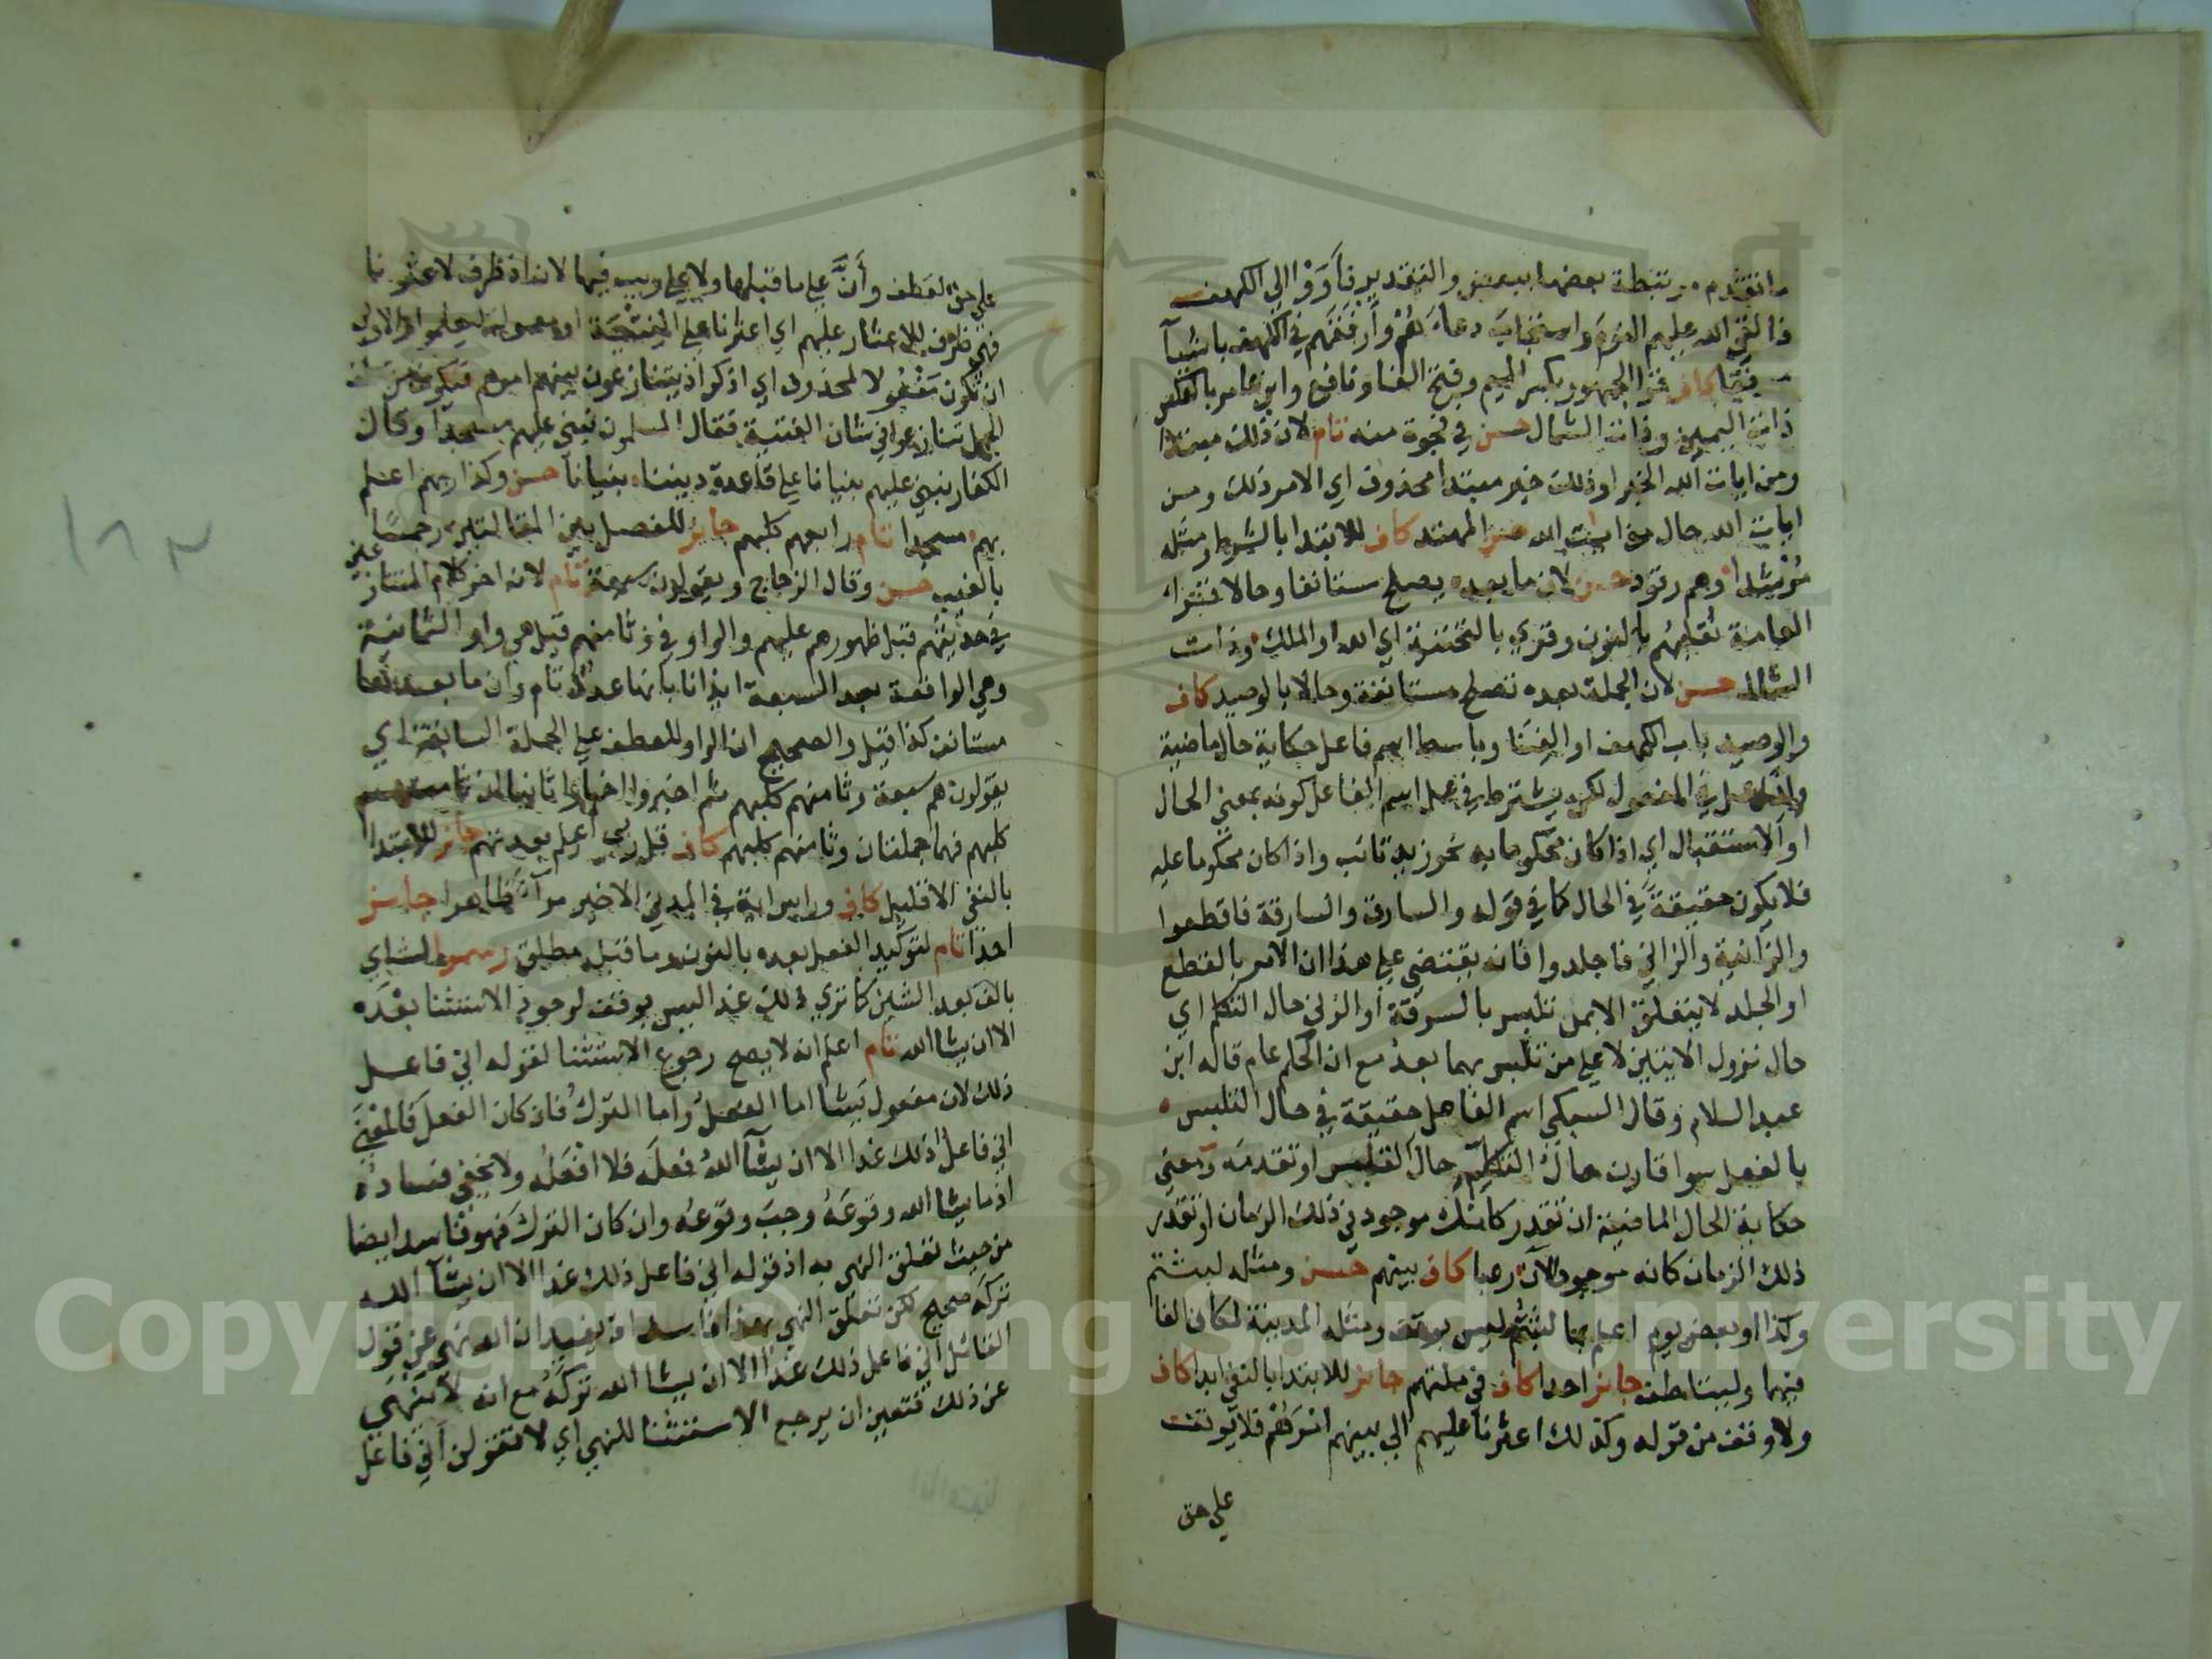 ما تقدم مرتبطة بعضها ببعض والتقدير فأووا الى الكهف
فالقى الله عليهم النوم واستجاب دعاءهم وأرفقهم في الكهف باشيآ
مرفقا كاف قرا الجمهور بكسر الميم وفتح الفا ونافع وابن عامر بالعكس
ذات اليمين وذات الشمال حسن في فجوة منه تام لان ذلك مبتدا
ومن ايات الله الخبر او ذلك خبر مبتدا محذوف اي الامر ذلك ومن
ايات الله حال من ايات الله حسن المهتد كاف للابتدا بالشرط ومثله
مرشدا وهم رقود حسن لان ما بعده يصلح مستانفا وحالا فقرا
العامة نقلبهم بالنون وقري بالتحتية اي الله او الملك وذات
الشمال حسن لان الجملة بعده تصلح مستانفة وحالا بالوصيد كاف
والوصيد باب الكهف او الفنا وباسط اسم فاعل حكاية حال ماضية
ولذا عمل في المفعول لكن يشترط في عمل اسم الفاعل كونه بمعنى الحال
او الاستقبال اي اذا كان محكوما به نحو زيد تائب واذا كان محكوما عليه
فلا يكون حقيقة في الحال كما في قوله والسارق والسارقة فاقطعوا
والزانية والزاني فاجلدوا فانه يقتضي على هذا ان الامر بالقطع
او الجلد لا يتعلق الا بمن تلبس بالسرقة او الزنى حال التكلم اي
حال نزول الايتين لا على من تلبس بهما بعد مع ان الحكم عام قاله ابن
عبد السلام وقال السبكي اسم الفاعل حقيقة في حال التلبس
بالفعل سوا قارن حال التكلم حال التلبس او تقدمه ومعنى
حكاية الحال الماضية ان تقدر كانك موجود في ذلك الزمان او تقدر
ذلك الزمان كانه موجود الآن رعبا كاف بينهم حسن ومثله لبثتم
وكذا او بعض يوم اعلم بما لبثتم ليس بوقف ومثله المدينة لمكان الفا
فيهما وليتلطف جائز احدا كاف في ملتهم جائز للابتدا بالنفي ابدا كاف
ولا وقف من قوله وكذلك اعثرنا عليهم الى بينهم امرهم فلا يوقف
على حق
على حق لعطف وأنّ على ما قبلها ولا على ريب فيها لان اذ ظرف لاعثرنا
فهي ظرف للاعثار عليهم اي اعثرنا على الفتية او معمولة ليعلموا والاولى
ان تكون مفعولا لمحذوف اي اذكر اذ يتنازعون بينهم امرهم فيكون من
الجمل تنازعوا في شان الفتية فقال المسلمون نبني عليهم مسجدا وقال
الكفار نبني عليهم بنيانا على قاعدة ديننا بنيانا حسن وكذا ربهم اعلم
بهم مسجدا تام رابعهم كلبهم جائز للفصل بين المقالتين رجما
بالغيب حسن وقال الزجاج ويقولون سبعة تام لانه اخر كلام المتنازعين
في حديثهم قبل ظهورهم عليهم والواو في وثامنهم قيل هي واو الثمانية
وهي الواقعة بعد السبعة ايذانا بأنها عدد تام وان ما بعدها
مستانف كذا قيل والصحيح ان الواو للعطف على الجملة السابقة اي
يقولون هم سبعة وثامنهم كلبهم ثم اخبروا اخبارا ثانيا ان ثامنهم
كلبهم فهما جملتان وثامنهم كلبهم كاف قل ربي اعلم بعدتهم جائز للابتدا
بالنفي الا قليل كاف وراس اية في المدني الاخير مرآء ظاهرا جائز
احدا تام لتوكيد الفعل بعده بالنون وما قبله مطلق رسموا لشاي
بالف بعد الشين كما ترى ذلك غدا ليس بوقف لوجود الاستثنا بعده
الا ان يشا الله تام اعلم انه لا يصح رجوع الاستثنا لقوله اني فاعل
ذلك لان مفعول يشا اما الفعل واما الترك فان كان الفعل فالمعنى
اني فاعل ذلك غدا الا ان يشآ الله فعله فلا افعله ولا يخفى فساده
اذ ما يشا الله وقوعه وجب وقوعه وان كان الترك فهو فاسد ايضا
من حيث تعلق النهي به اذ قوله اني فاعل ذلك غدا الا ان يشآ الله
تركه صحيح لكن تعلق النهي بهذا فاسد اذ يفيد ان الله نهى عن قول
القائل اني فاعل ذلك غدا الا ان يشا الله تركه مع انه لا ينهى
عن ذلك فتعين ان يرجع الاستثنا للنهي اي لا تقولن اني فاعل
١٨٣
Copyright © King Saud University
1957